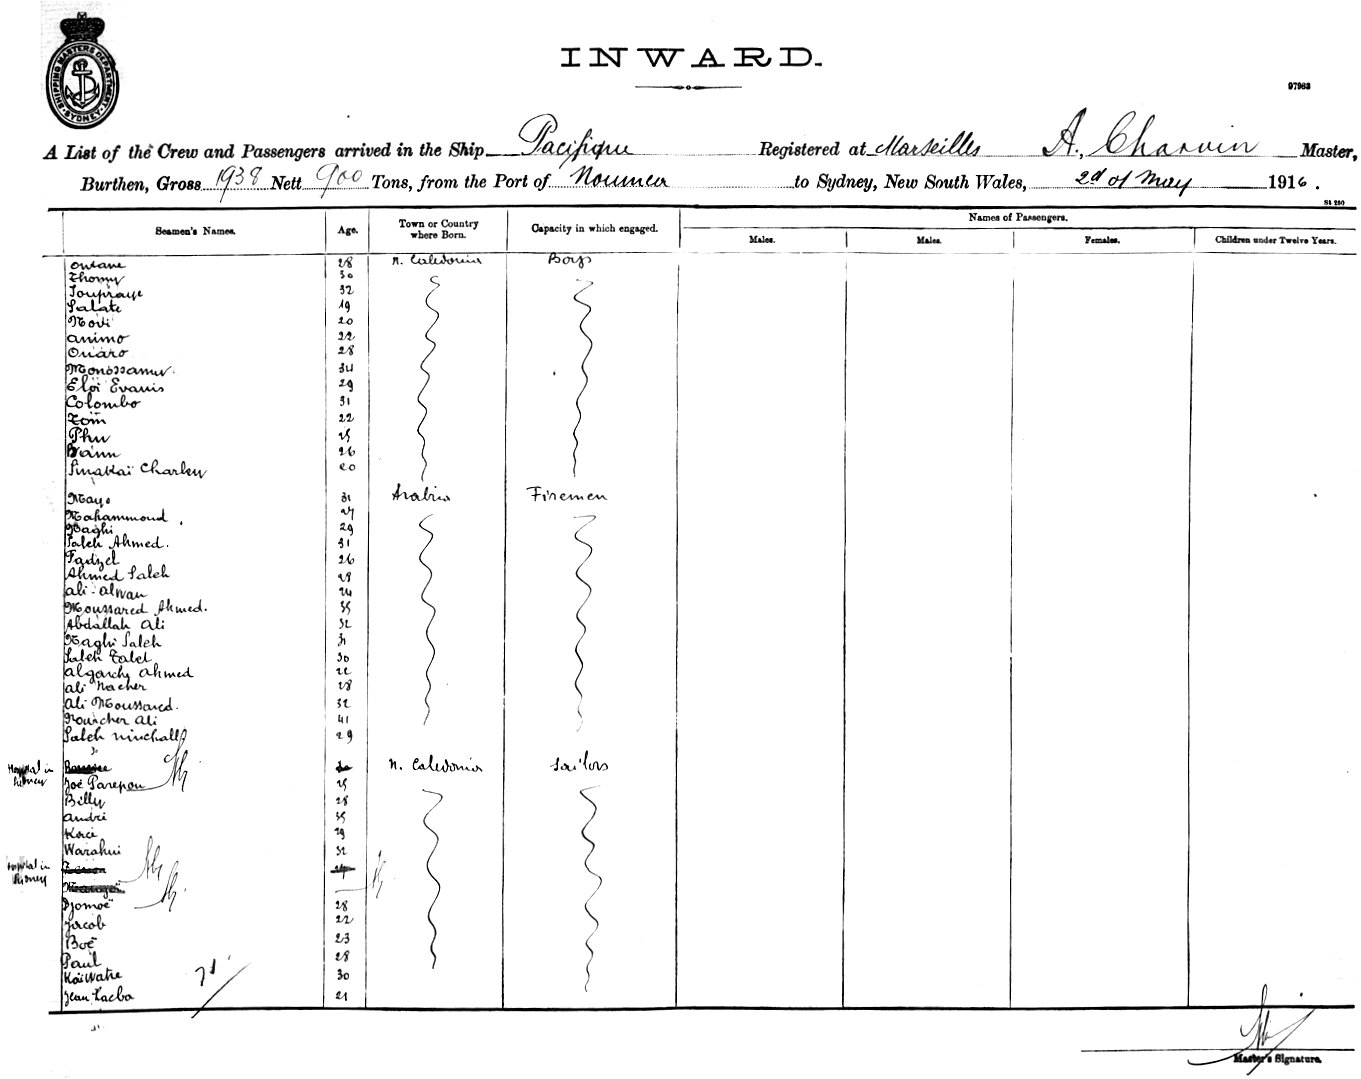 SHIPPING MASTERS DEPARTMENT SYDNEY
INWARD.
97963
A List of the Crew and Passengers arrived in the Ship Pacifique Registered at Marseilles A. Charvin Master,
Burthen, Gross 1938 Nett 900 Tons, from the Port of Noumea to Sydney, New South Wales, 2d of May 1916.
St 250
Seamen's Names. Age. Town or Country where Born. Capacity in which engaged. Names of Passengers.
Males. Males. Females. Children under Twelve Years.
28 N. Caledonia Boys
Thomy 30
Toupraye 32
Salate 19
Novi 20
Animo 22
Ouaro 28
Monossamy 34
Eloi Evanis 29
Colombo 31
Tom 22
Phu 25
26
Singkaï Charley 20
Mayo 31 Arabia Firemen
Mahammoud 27
Naghi 29
Saleh Ahmed. 31
Fadzel 26
Ahmed Saleh 28
Ali-Alwan 24
Moussared Ahmed. 35
Abdallah Ali 32
Naghi Saleh 31
Saleh Talel 30
Algarchy Ahmed 22
Ali Nacher 28
Ali Moussared. 32
Nouscher Ali 41
Saleh Ninchall 29
Hospital in Sidney N. Caledonia Sailors
Joé Parepou 25
Billy 28
André 35
Koci 29
Warahui 32
Hospital in Sidney
Djomoë 28
Jacob 22
Boë 23
Paul 28
Kaï Watre 30
Jean Kacba 21
Master's Signature.